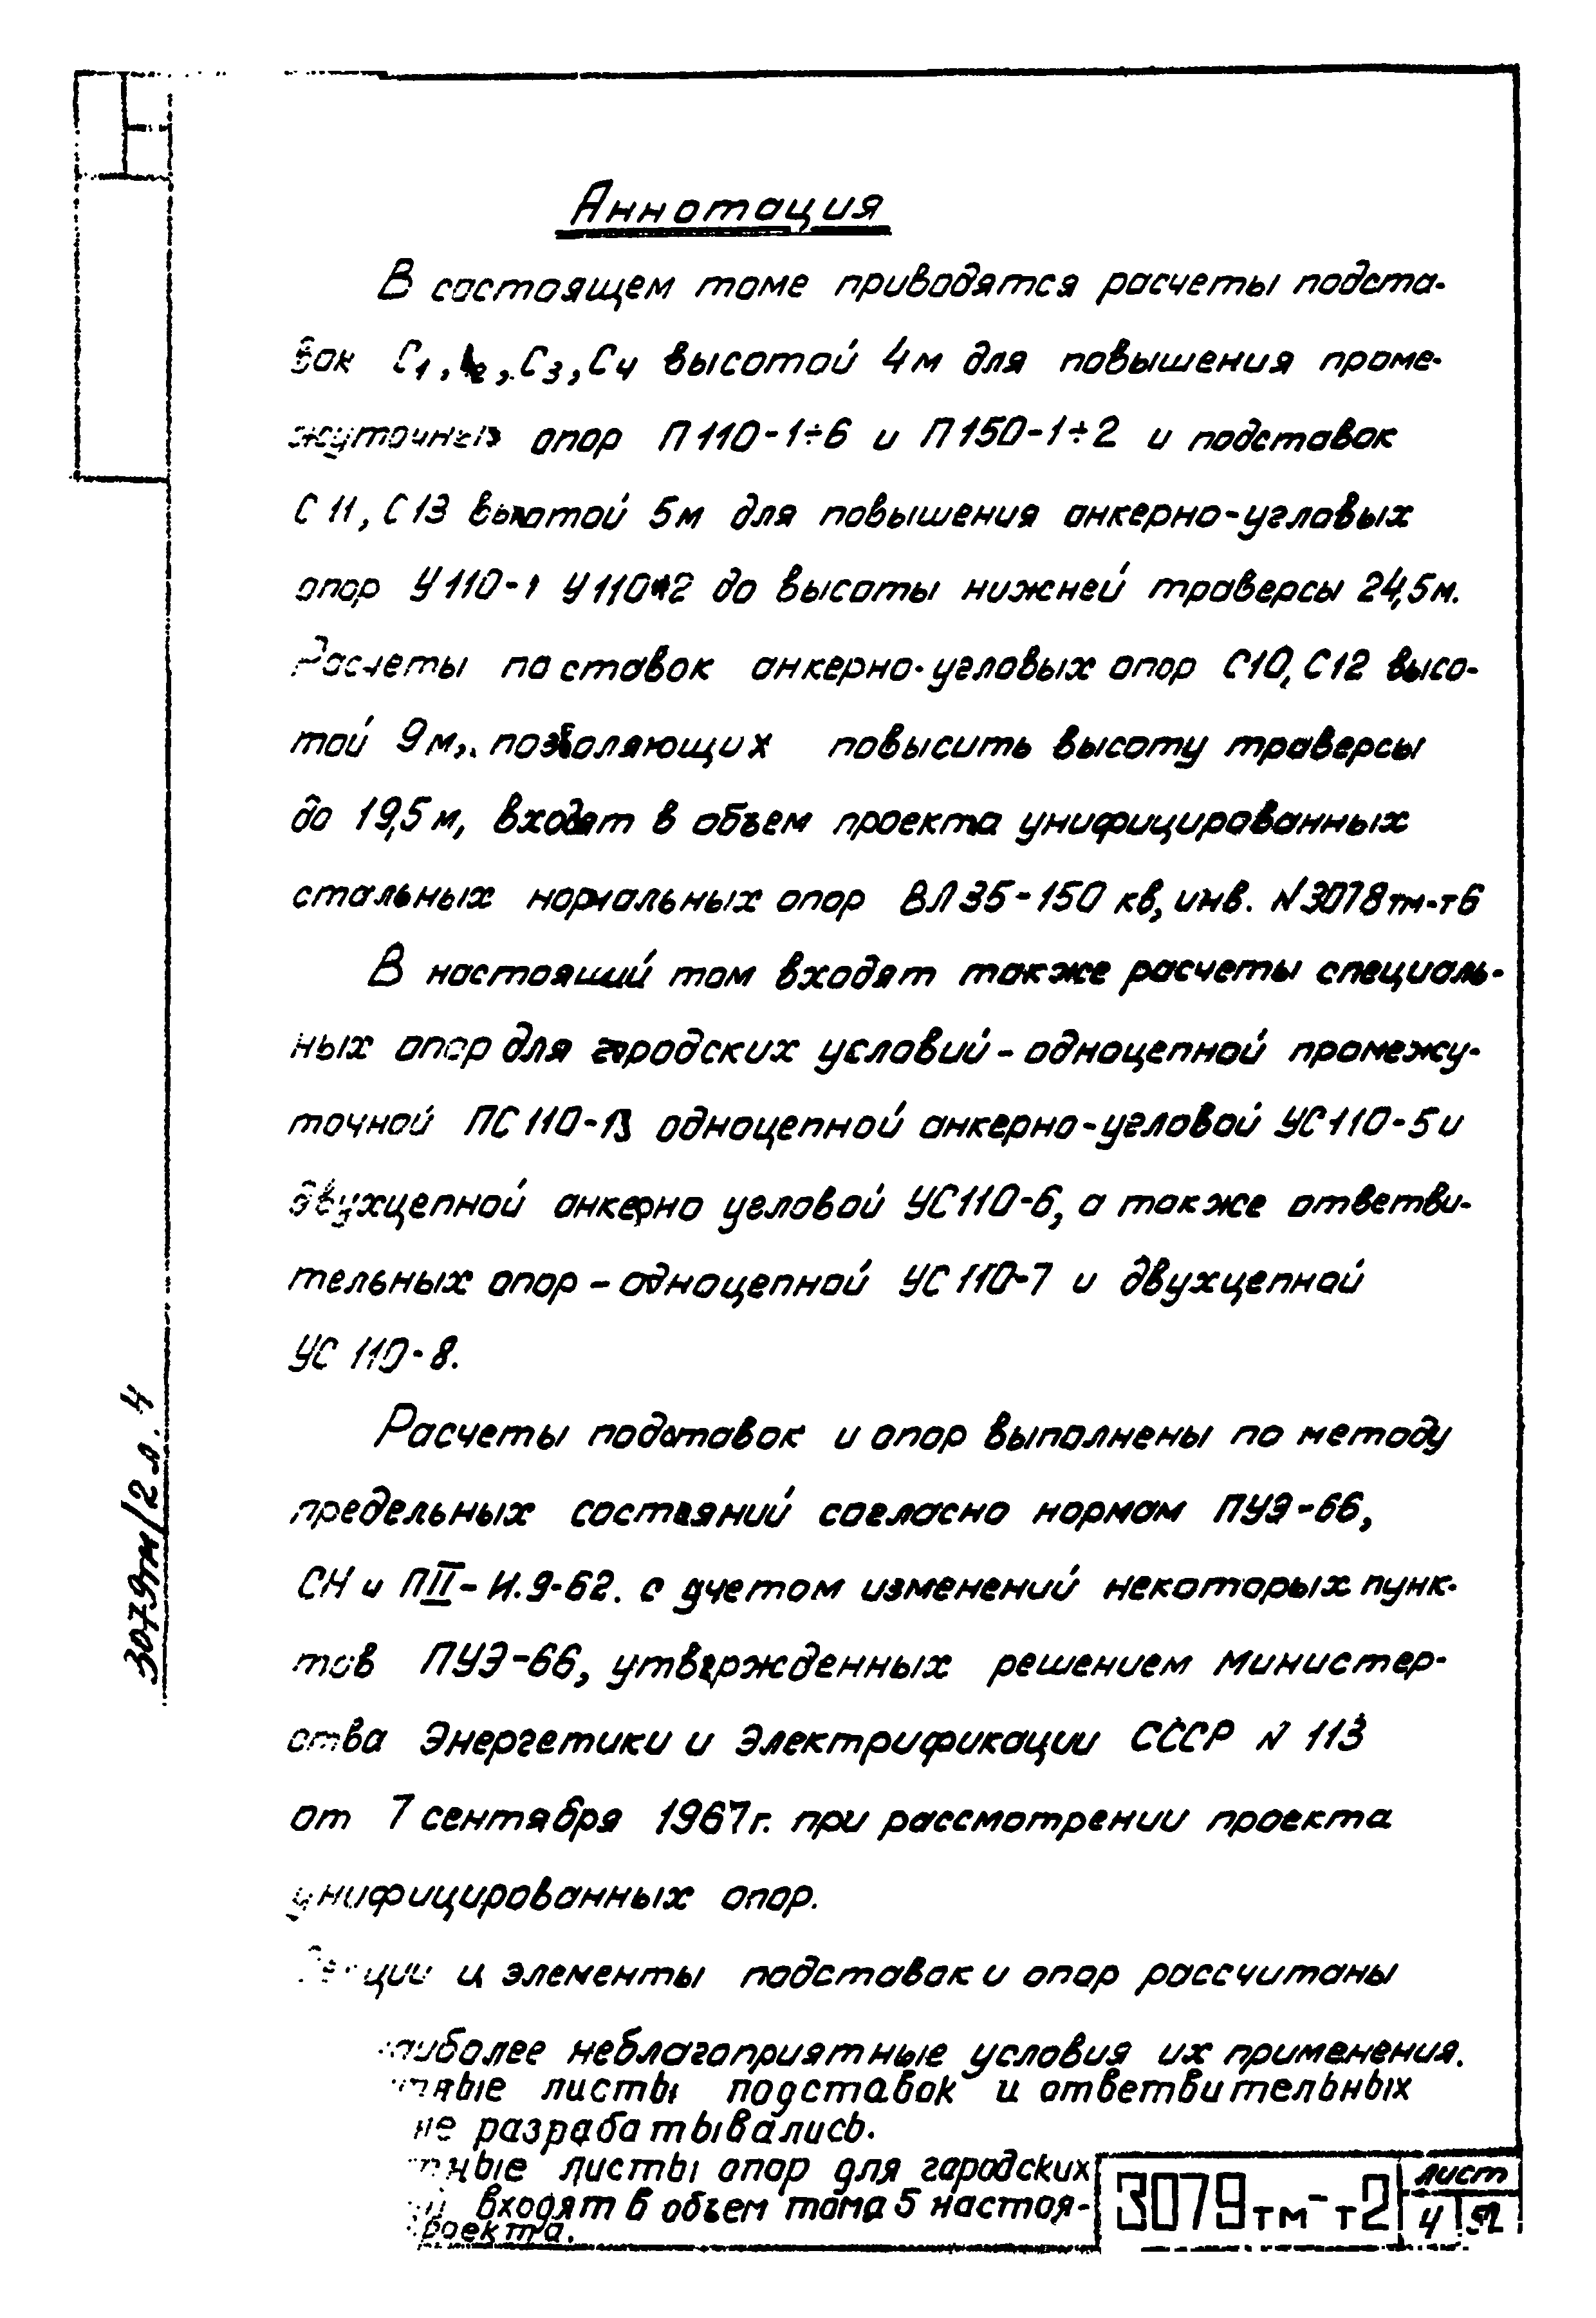 Аннотация
В состоящем томе приводятся расчеты подста-
вок С1, С2, С3, С4 высотой 4м для повышения проме-
жуточных опор П110-1÷6 и П150-1÷2 и подставок
С11, С13 высотой 5м для повышения анкерно-угловых
опор У110-1 У110-2 до высоты нижней траверсы 24,5м.
Расчеты подставок анкерно-угловых опор С10, С12 высо-
той 9м, позволяющих повысить высоту траверсы
до 19,5м, входят в объем проекта унифицированных
стальных нормальных опор ВЛ 35-150 кв, инв. N3078тм-т6
В настоящий том входят также расчеты специаль-
ных опор для городских условий - одноцепной промежу-
точной ПС110-13 одноцепной анкерно-угловой УС110-5 и
двухцепной анкерно угловой УС110-6, а также ответви-
тельных опор - одноцепной УС110-7 и двухцепной
УС 110-8.
Расчеты подставок и опор выполнены по методу
предельных состояний согласно нормам ПУЭ-66,
СН и П II-И.9-62. с учетом изменений некоторых пунк-
тов ПУЭ-66, утвержденных решением министер-
ства Энергетики и Электрификации СССР N 113
от 7 сентября 1967г. при рассмотрении проекта
унифицированных опор.
Секции и элементы подставок и опор рассчитаны
наиболее неблагоприятные условия их применения.
листы подставок и ответвительных
не разрабатывались.
листы опор для городских
входят в объем тома 5 настоя-
проекта.
3079тм-т2
лист
4 52
3079тм/2 л. 4